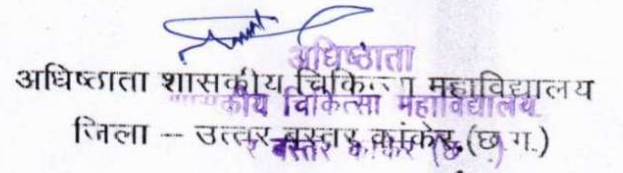 अधिष्ठाता
अधिष्ठाता शासकीय चिकित्सा महाविद्यालय
शासकीय चिकित्सा महाविद्यालय
जिला – उत्तर बस्तर कांकेर (छ.ग.)
बस्तर कांकेर (छ. )